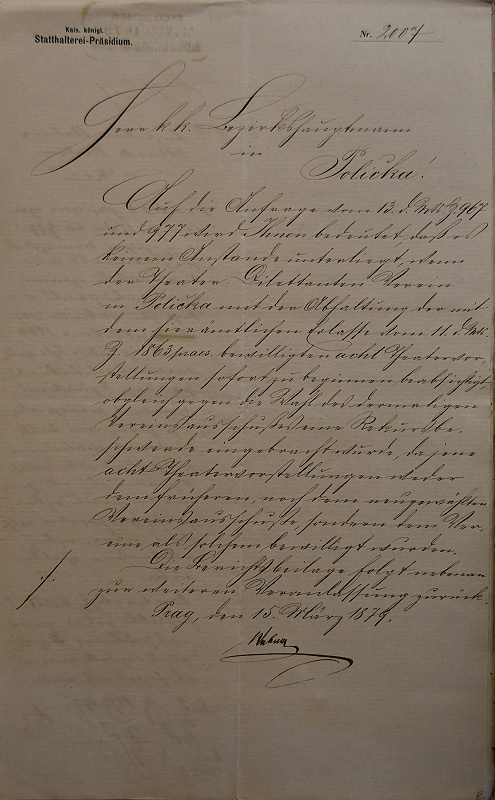 Kais. königl.
Statthalterei-Präsidium.
Nr. 2007
Herr k. k. Bezirkshauptmann
in
Polička!
Auf die Anfrage vom 13. d. Mts Z. 967
und 977 wird Ihnen bedeutet, daß es
keinem Anstande unterliegt, wenn
der Theater Dilettanten Verein
in Polička mit der Abhaltung der mit
dem hierämtlichen Erlasse vom 11. d. Mts.
Z. 1863 praes. bewilligten acht Theatervor-
stellungen sofort zu beginnen beabsichtigt
obgleich gegen die Wahl des dermaligen
Vereinsausschußes eine Rekursbe-
schwerde eingebracht wurde, da jene
acht Theatervorstellungen weder
dem früheren, noch dem neugewählten
Vereinsausschuße, sondern dem Ver-
eine als solchem bewilligt wurden.
Die Berichtsbeilage folgt nebenan
zur weiteren Veranlassung zurück.
Prag, den 15. März 1879.